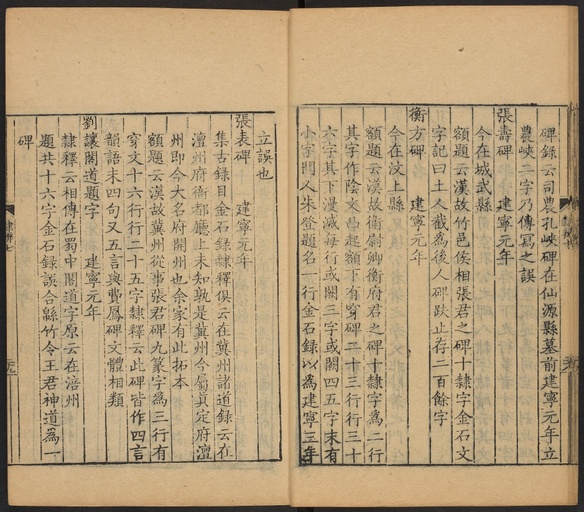 碑錄云司農孔峽碑在仙源縣墓前建寧元年立
農峽二字乃傳寫之誤
張壽碑 建寧元年
今在城武縣
額題云漢故竹邑侯相張君之碑十隸字金石文
字記曰土人截為後人碑趺止存二百餘字
衡方碑 建寧元年
今在汶上縣
額題云漢故衛尉卿衡府君之碑十隸字為二行
其字作陰文凸起額下有穿碑二十三行行三十
六字其下漫滅每行或闕三字或闕四五字末有
小字門人朱登題名一行金石錄以為建寧三年
立誤也
張表碑 建寧元年
集古錄目金石錄隸釋俱云在冀州諸道錄云在
澶州府衙都廳上未知孰是冀州今屬真定府澶
州即今大名府開州也余家有此拓本
額題云漢故冀州從事張君碑九篆字為三行有
穿文十六行行二十五字隸釋云此碑皆作四言
韻語末四句又五言與費鳳碑文體相類
劉讓閣道題字 建寧元年
隸釋云相傳在蜀中閣道字原云在涪州
題共十六字金石錄誤合緜竹令王君神道為一
碑
隸辨七